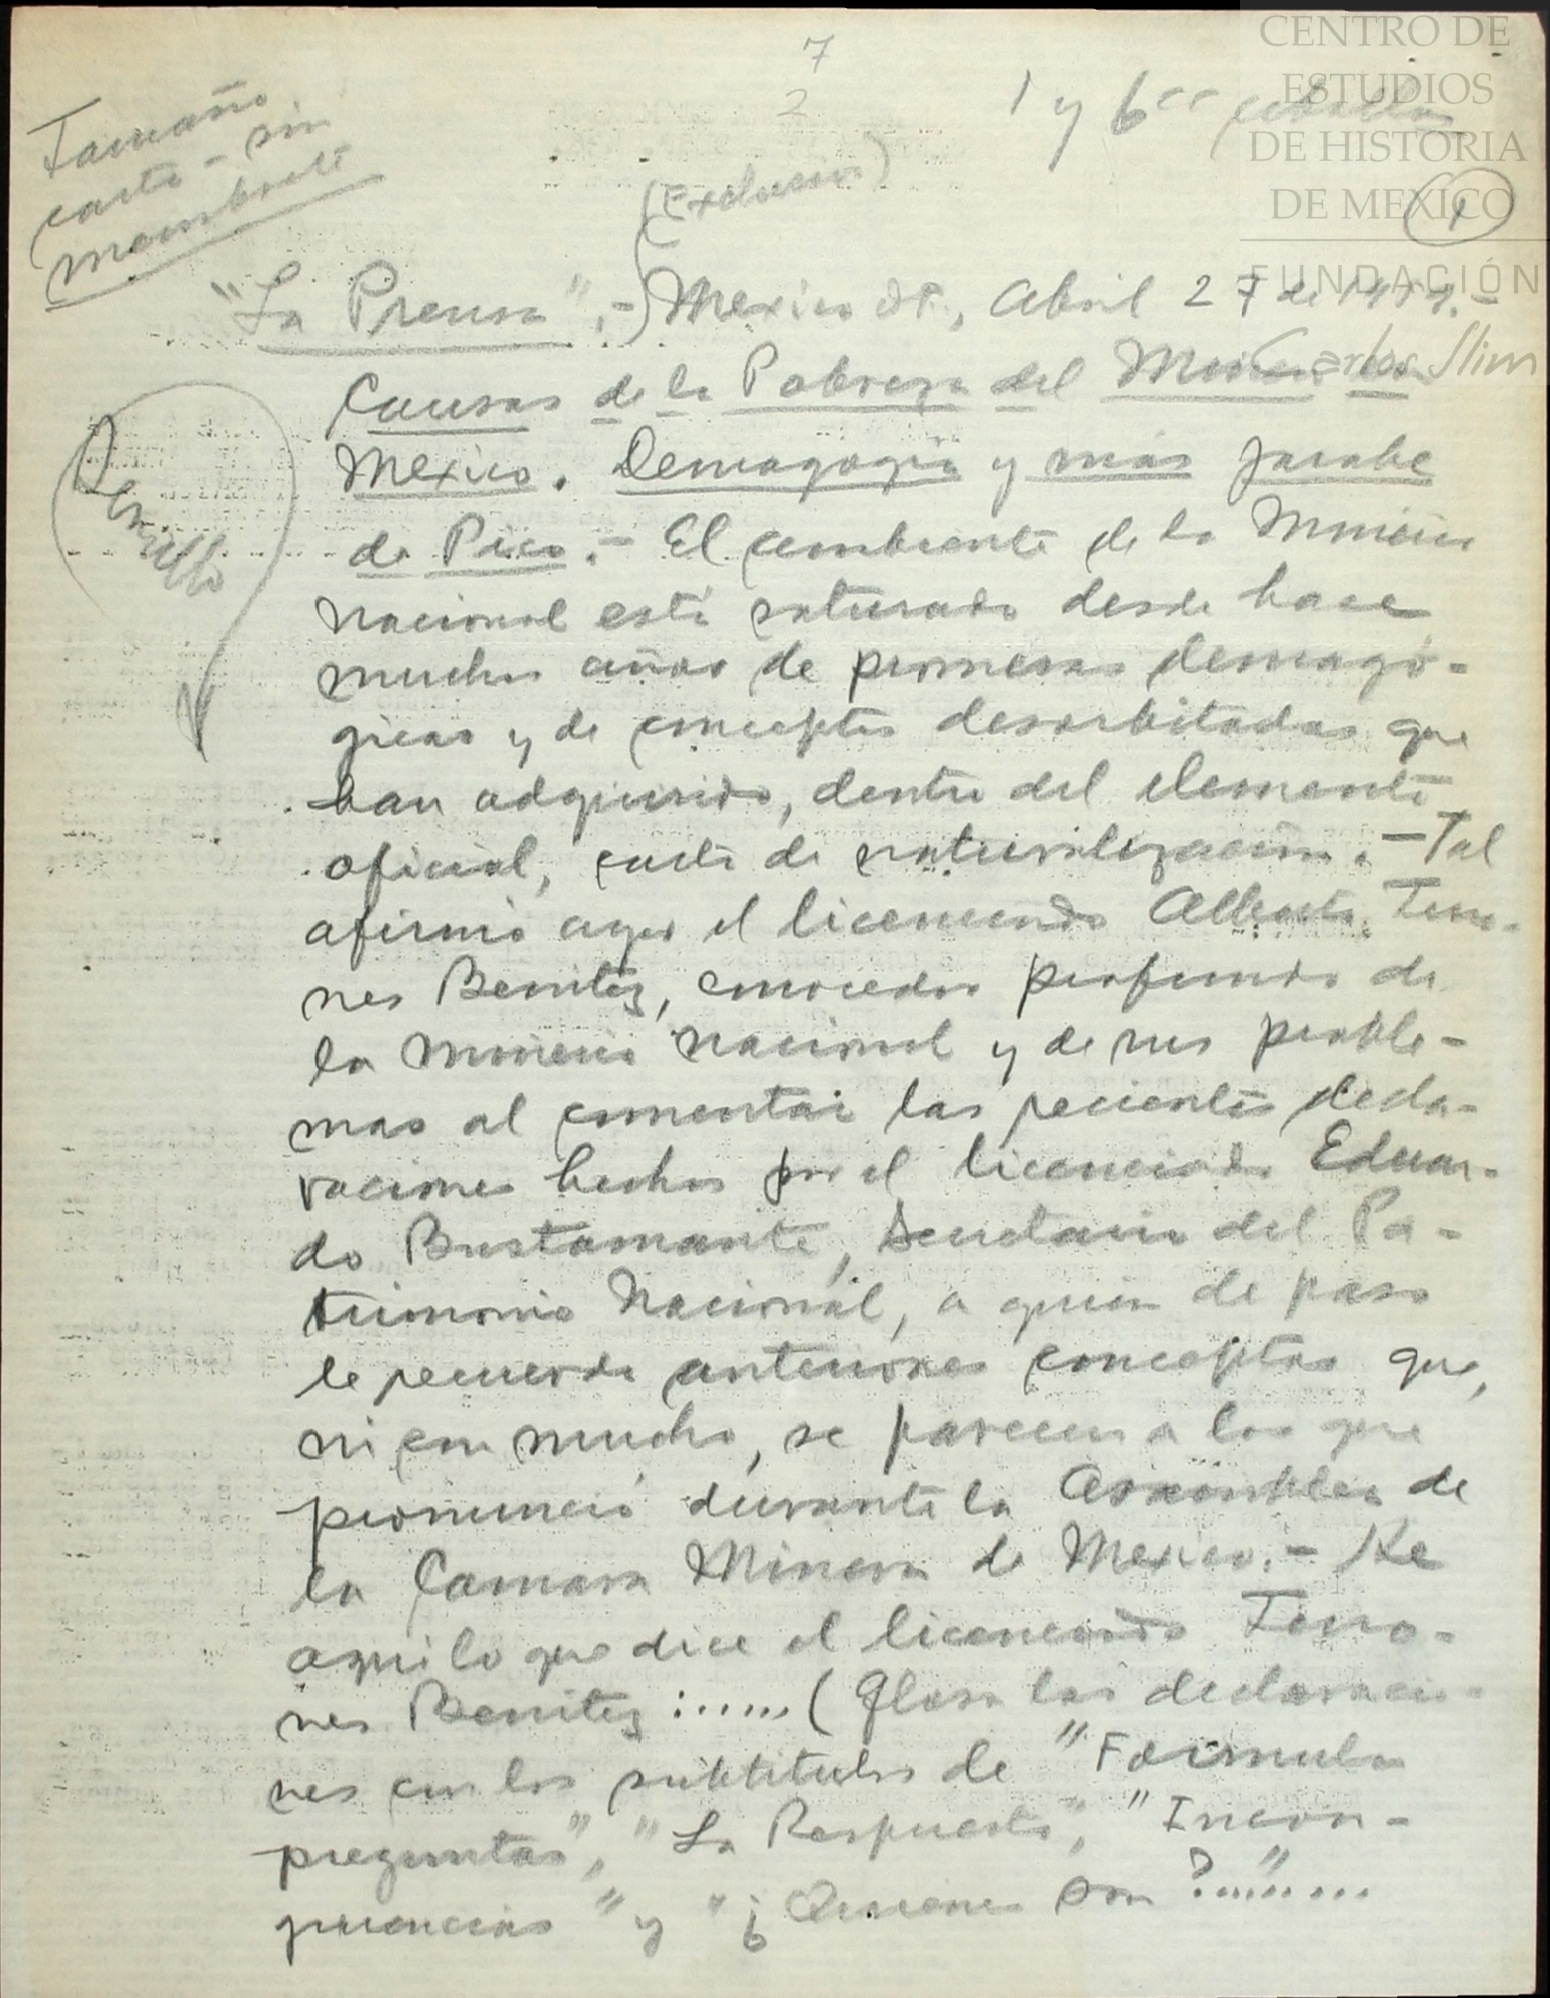 7
2
1 y 6
CENTRO DE
ESTUDIOS
DE HISTORIA
DE MEXICO
FUNDACIÓN
Carlos Slim
1
Tamaño
carta - sin
membrete
(Exclusivo)
"La Prensa".- Mexico D.F., Abril 27 de
Causas de la Pobreza del Minero en
Mexico. Demagogia y más Jarabe
de Pico.- El ambiente de la Mineria
nacional está saturado desde hace
muchos años de promesas demagó-
gicas y de conceptos desorbitados que
han adquirido, dentro del elemento
oficial, carta de naturalización.- Tal
afirmó ayer el licenciado Alberto Terro-
nes Benitez, conocedor profundo de
la mineria nacional y de sus proble-
mas al comentar las recientes decla-
raciones hechas por el licenciado Eduar-
do Bustamante, Secretario del Pa-
trimonio Nacional, a quien de paso
le recuerda anteriores conceptos que,
ni con mucho, se parecen a los que
pronunció durante la Asamblea de
la Camara Minera de Mexico.- He
aqui lo que dice el licenciado Terro-
nes Benitez:......(Glosa las declaracio-
nes con los subtitulos de "Formula
preguntas", "La Respuesta", "Incon-
gruencias" y "¿Quienes son?"......